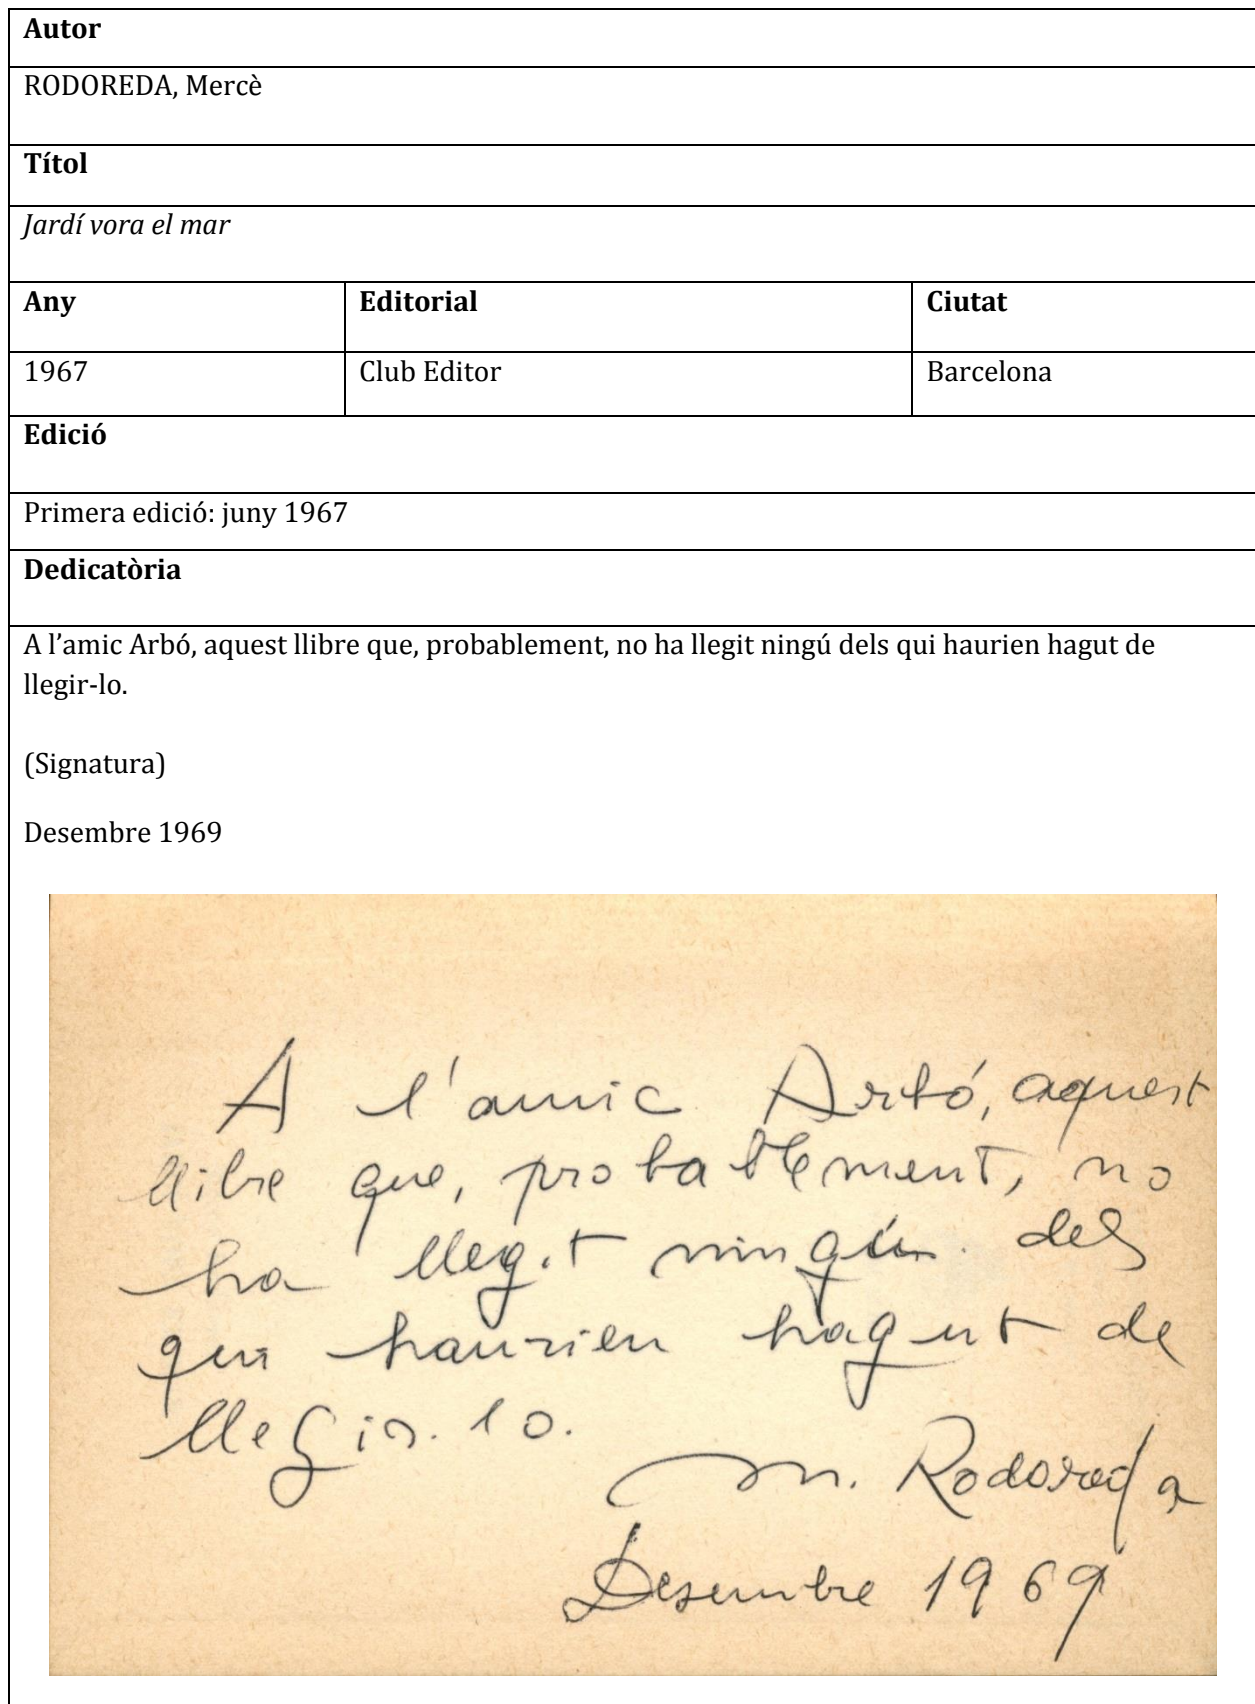 Autor
RODOREDA, Mercè
Títol
Jardí vora el mar
Any Editorial Ciutat
1967 Club Editor Barcelona
Edició
Primera edició: juny 1967
Dedicatòria
A l’amic Arbó, aquest llibre que, probablement, no ha llegit ningú dels qui haurien hagut de
llegir-lo.
(Signatura)
Desembre 1969
A l'amic Arbó, aquest
llibre que, probablement, no
ha llegit ningú dels
qui haurien hagut de
llegir-lo.
M. Rodoreda
Desembre 1969